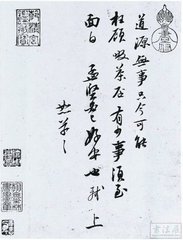 道源無事只今可能
枉顧啜茶否有少事須至
面白孟堅必已好安也軾上
恕草草